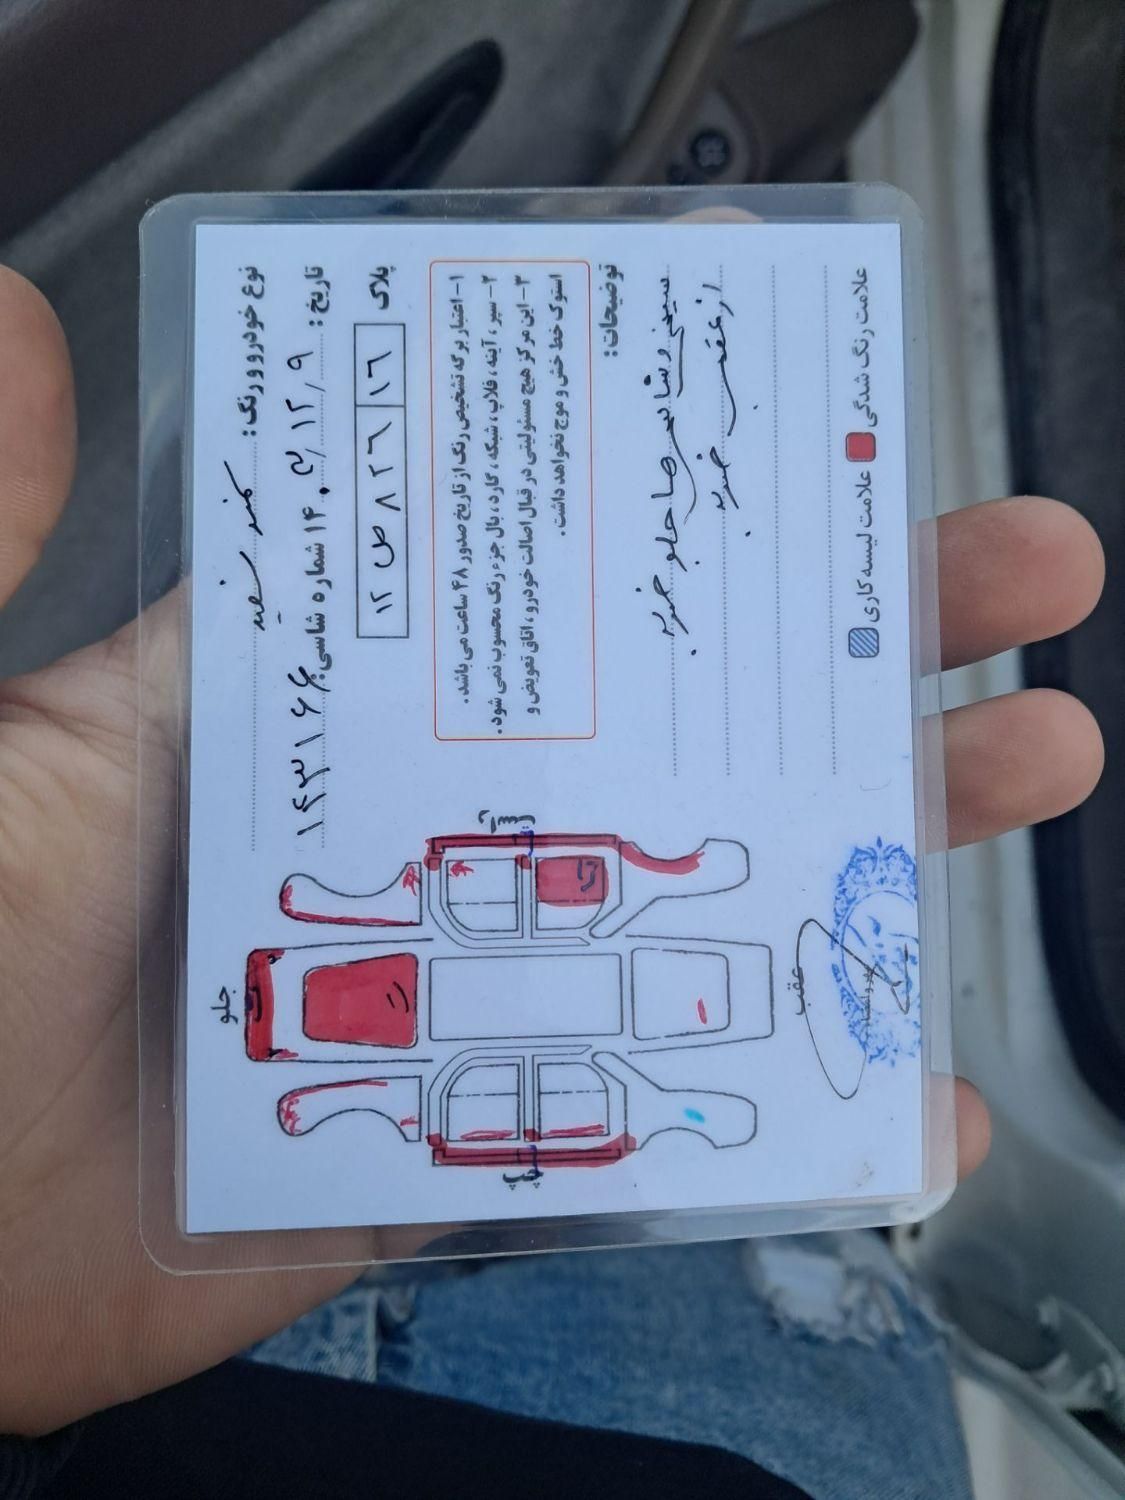 نوع خودرو و رنگ: سمند سفید
تاریخ: ۱۴۰۳/۱۲/۹ شماره شاسی: ۱۴۳۱۶۶
پلاک
۱۲ ص ۸۲۶ ۱۶
۱- اعتبار برگه تشخیص رنگ از تاریخ صدور ۴۸ ساعت می باشد.
۲- سپر، آینه، فلاپ، شبکه، گارد، بال جزء رنگ محسوب نمی شود.
۳- این مرکز هیچ مسئولیتی در قبال اصالت خودرو، اتاق تعویض و
استوک خط خش و موج نخواهد داشت.
توضیحات:
سینی و شاسی ها جلو ضربه
از عقب ضربه
علامت رنگ شدگی علامت لیسه کاری
جلو
راست
چپ
عقب